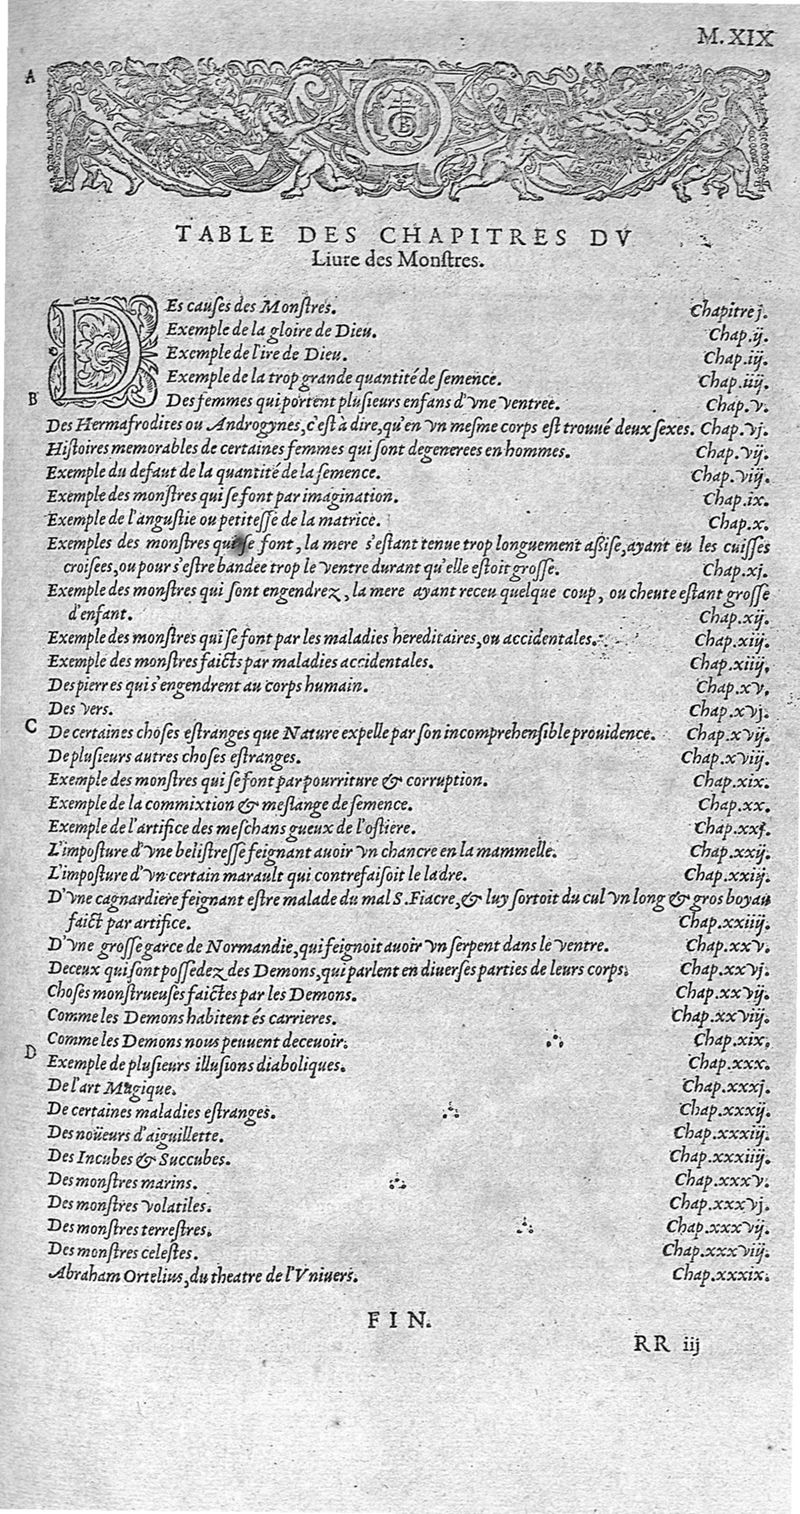 M.XIX
A
B
TABLE DES CHAPITRES DV
Liure des Monſtres.
DEs cauſes des Monſtres. Chapitre j.
Exemple de la gloire de Dieu. Chap.ij.
Exemple de l'ire de Dieu. Chap.iij.
Exemple de la trop grande quantité de ſemence. Chap.iiij.
B Des femmes qui portent pluſieurs enfans d'vne ventree. Chap.v.
Des Hermafrodites ou Androgynes, c'eſt à dire, qu'en vn meſme corps eſt trouué deux ſexes. Chap.vj.
Hiſtoires memorables de certaines femmes qui ſont degenerees en hommes. Chap.vij.
Exemple du defaut de la quantité de la ſemence. Chap.viij.
Exemple des monſtres qui ſe font par imagination. Chap.ix.
Exemple de l'anguſtie ou petiteſſe de la matrice. Chap.x.
Exemples des monſtres qui ſe font, la mere s'eſtant tenue trop longuement aſsiſe, ayant eu les cuiſſes
croiſees, ou pour s'eſtre bandee trop le ventre durant qu'elle eſtoit groſſe. Chap.xj.
Exemple des monſtres qui ſont engendrez, la mere ayant receu quelque coup, ou cheute eſtant groſſe
d'enfant. Chap.xij.
Exemple des monſtres qui ſe font par les maladies hereditaires, ou accidentales. Chap.xiij.
Exemple des monſtres faicts par maladies accidentales. Chap.xiiij.
Des pierres qui s'engendrent au corps humain. Chap.xv.
Des vers. Chap.xvj.
C De certaines choſes eſtranges que Nature expelle par ſon incomprehenſible prouidence. Chap.xvij.
De pluſieurs autres choſes eſtranges. Chap.xviij.
Exemple des monſtres qui ſe font par pourriture & corruption. Chap.xix.
Exemple de la commixtion & meſlange de ſemence. Chap.xx.
Exemple de l'artifice des meſchans gueux de l'oſtiere. Chap.xxj.
L'impoſture d'vne beliſtreſſe feignant auoir vn chancre en la mammelle. Chap.xxij.
L'impoſture d'vn certain marault qui contrefaiſoit le ladre. Chap.xxiij.
D'vne cagnardiere feignant eſtre malade du mal S. Fiacre, & luy ſortoit du cul vn long & gros boyau
faict par artifice. Chap.xxiiij.
D'vne groſſe garce de Normandie, qui feignoit auoir vn ſerpent dans le ventre. Chap.xxv.
De ceux qui ſont poſſedez des Demons, qui parlent en diuerſes parties de leurs corps. Chap.xxvj.
Choſes monſtrueuſes faictes par les Demons. Chap.xxvij.
Comme les Demons habitent és carrieres. Chap.xxviij.
Comme les Demons nous peuuent deceuoir. Chap.xix.
D Exemple de pluſieurs illuſions diaboliques. Chap.xxx.
De l'art Magique. Chap.xxxj.
De certaines maladies eſtranges. Chap.xxxij.
Des noüeurs d'aiguillette. Chap.xxxiij.
Des Incubes & Succubes. Chap.xxxiiij.
Des monſtres marins. Chap.xxxv.
Des monſtres volatiles. Chap.xxxvj.
Des monſtres terreſtres. Chap.xxxvij.
Des monſtres celeſtes. Chap.xxxviij.
Abraham Ortelius, du theatre de l'Vniuers. Chap.xxxix.
FIN.
RR iij